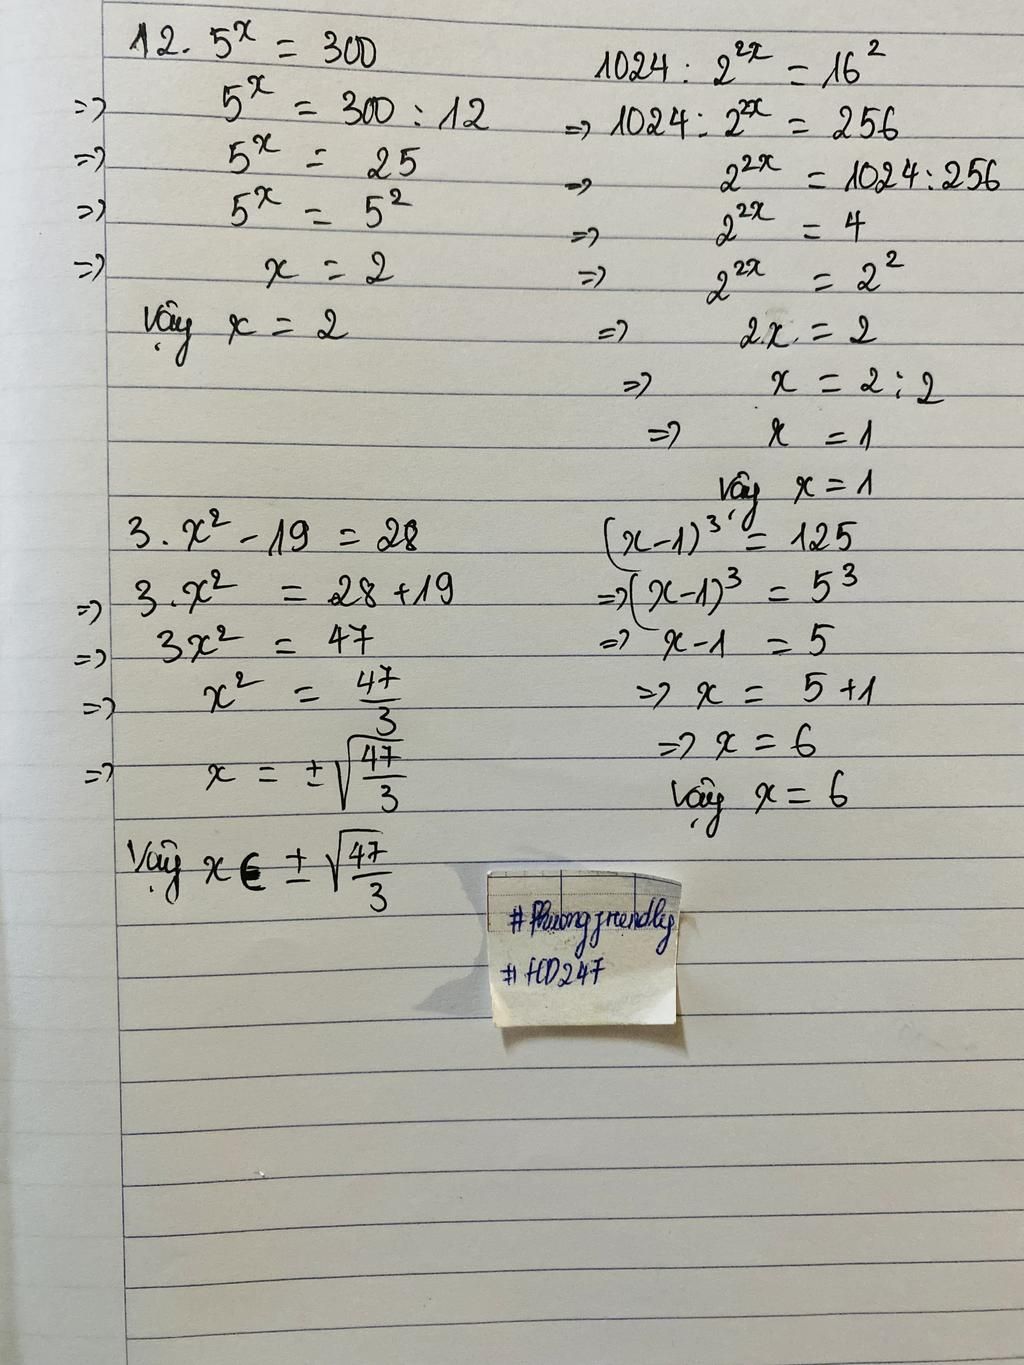 12. 5^x = 300
=> 5^x = 300 : 12
=> 5^x = 25
=> 5^x = 5^2
=> x = 2
Vậy x = 2
1024 : 2^2x = 16^2
=> 1024 : 2^2x = 256
=> 2^2x = 1024 : 256
=> 2^2x = 4
=> 2^2x = 2^2
=> 2x = 2
=> x = 2 : 2
=> x = 1
Vậy x = 1
3 . x^2 - 19 = 28
=> 3 . x^2 = 28 + 19
=> 3x^2 = 47
=> x^2 = 47/3
=> x = ± √(47/3)
Vậy x ∈ ± √(47/3)
(x-1)^3 = 125
=> (x-1)^3 = 5^3
=> x-1 = 5
=> x = 5 + 1
=> x = 6
Vậy x = 6
#Phuongfriendly
#HD247